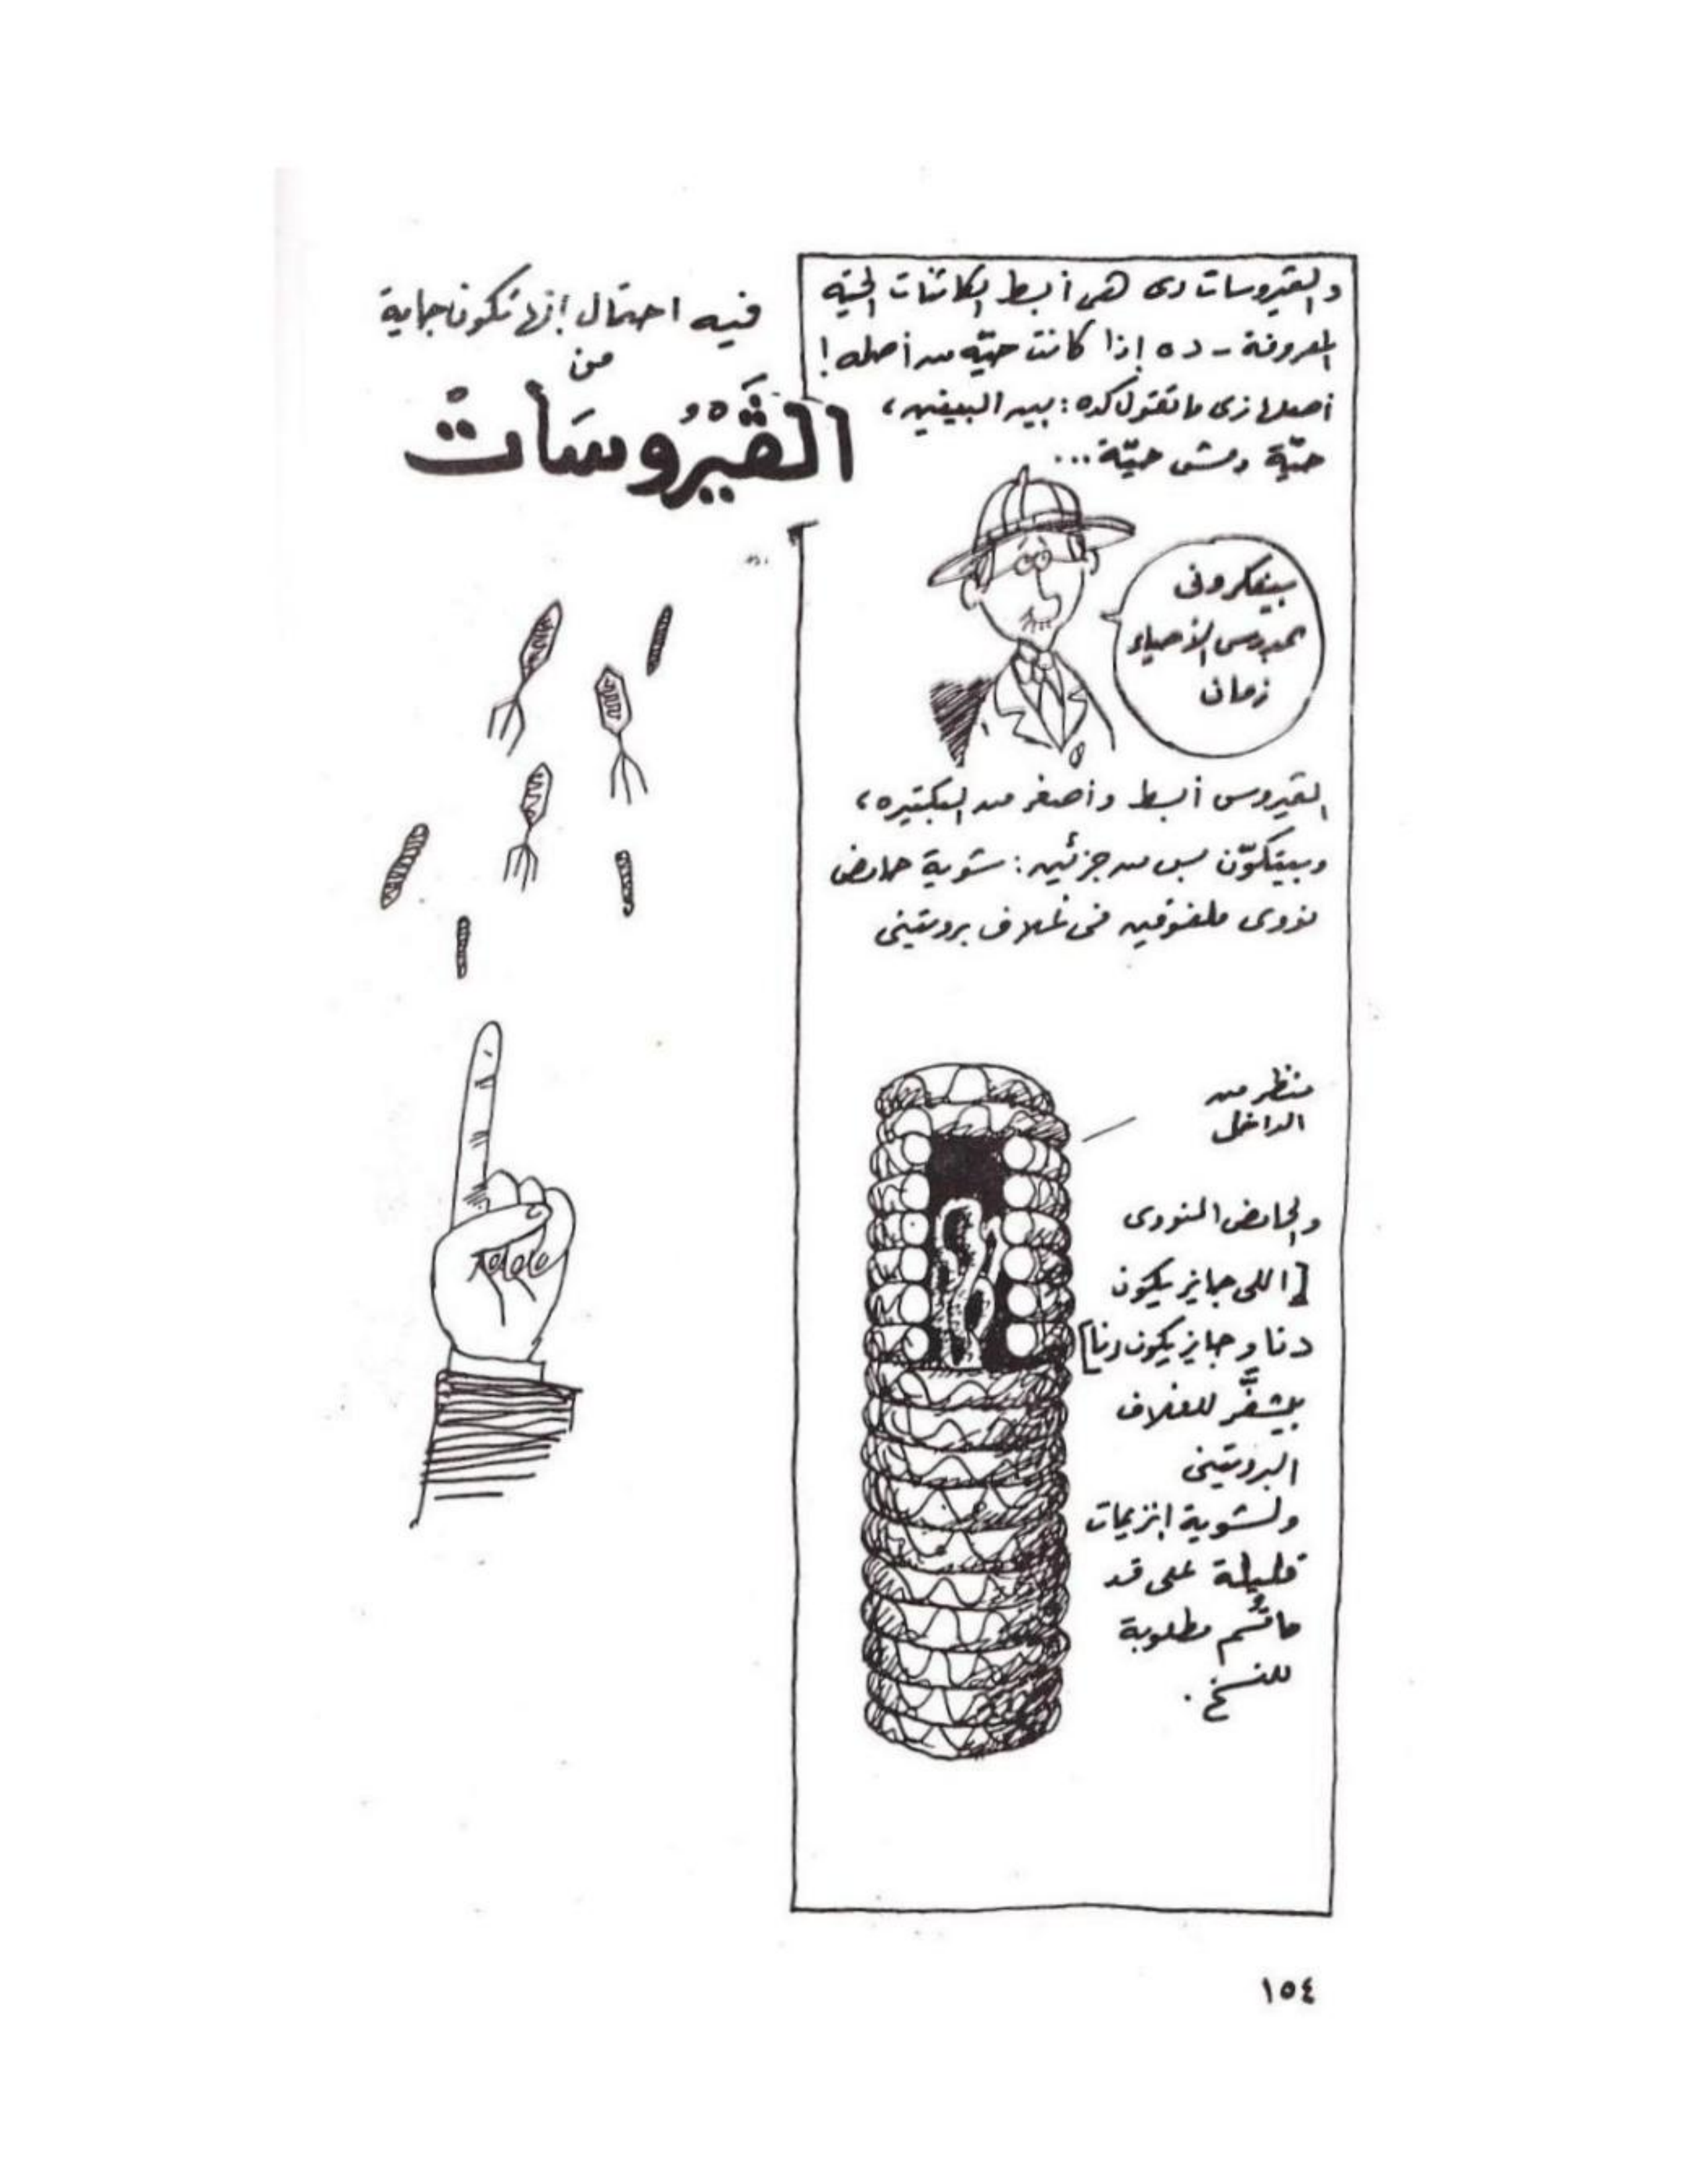 فيه احتمال إنها تكون جاية
من
الڤَيْرُوسَاتْ
والڤيروسات دى هى أبسط الكائنات الحيّة
المعروفة - ده إذا كانت حيّة من أصله!
أصلها زى ما تقول كده: بين البينين،
حيّة ومش حيّة...
بيفكرونى
بمدرس الأحياء
زمان
الڤيروس أبسط وأصغر من البكتيره،
وبيتكوّن بس من جزئين: شوية حامض
نووى ملفوفين فى غلاف بروتينى
منظر من
الداخل
والحامض النووى
[اللى جايز يكون
دنا وجايز يكون رنا]
بيشفَّر للغلاف
البروتينى
ولشوية انزيمات
قليلة على قد
مطلوبة
للنسخ.
١٥٤